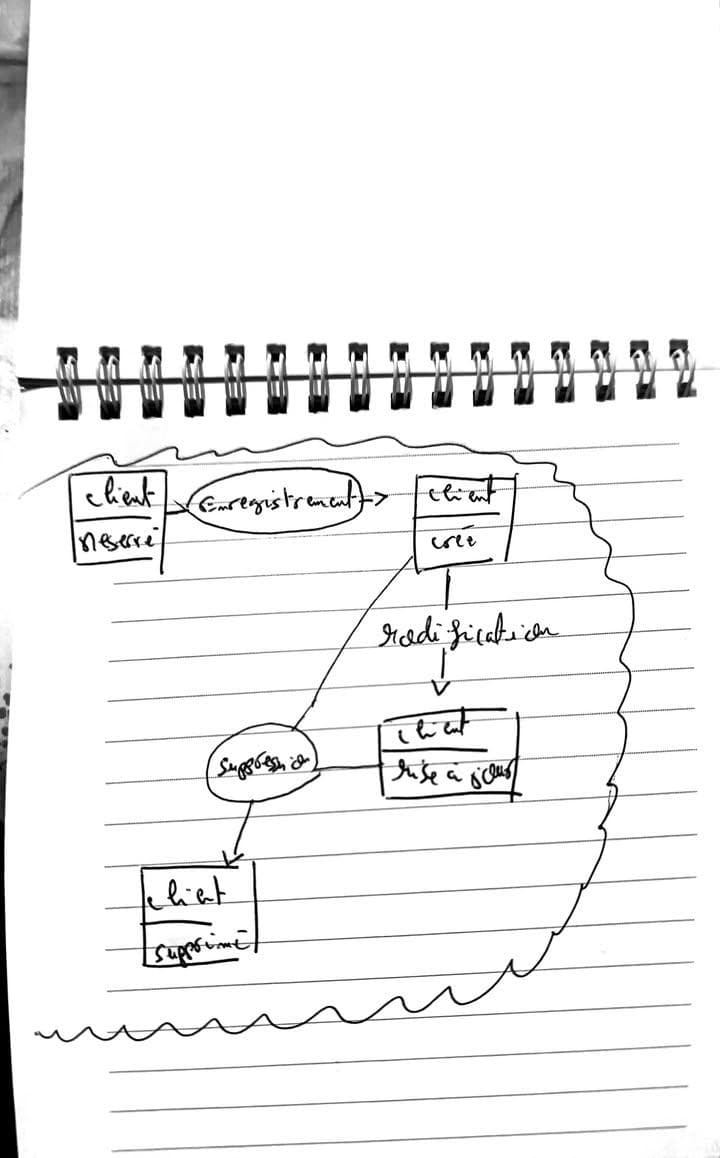 client
Réservé
Enregistrement
client
créé
Modification
client
Mise à jour
suppression
client
supprimé